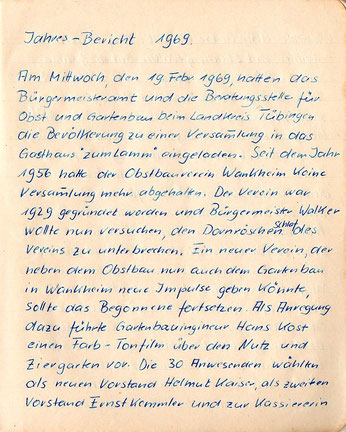 Jahres-Bericht 1969.
Am Mittwoch, den 19. Febr 1969, hatten das
Bürgermeisteramt und die Beratungsstelle für
Obst und Gartenbau beim Landkreis Tübingen
die Bevölkerung zu einer Versamlung in das
Gasthaus "zum Lamm" angeladen. Seit dem Jahr
1956 hatte der Obstbauverein Wankheim keine
Versamlung mehr abgehalten. Der Verein war
1929 gegründet worden und Bürgermeister Walker
wollte nun versuchen, den Dornröschen Schlaf des
Vereins zu unterbrechen. Ein neuer Verein, der
neben dem Obstbau nun auch dem Gartenbau
in Wankheim neue Impulse geben könnte,
sollte das Begonnene fortsetzen. Als Anregung
dazu führte Gartenbauingineur Hans Kost
einen Farb-Tonfilm über den Nutz und
Ziergarten vor. Die 30 Anwesenden wählten
als neuen Vorstand Helmut Kaiser, als zweiten
Vorstand Ernst Kemmler und zur Kassiererin